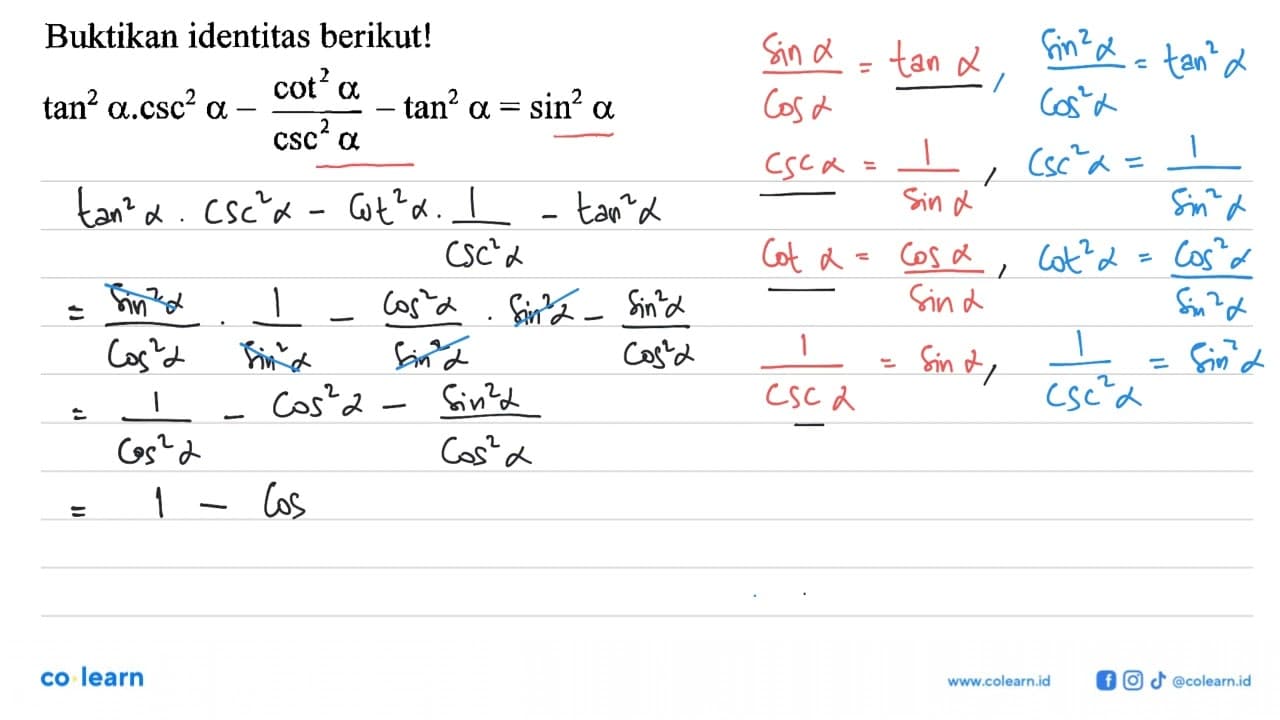 Buktikan identitas berikut!
tan² α.csc² α − cot² α / csc² α − tan² α = sin² α
tan² α . csc² α − cot² α . 1 / csc² α − tan² α
= sin² α / cos² α . 1 / sin² α − cos² α / sin² α . sin² α − sin² α / cos² α
= 1 / cos² α − cos² α − sin² α / cos² α
= 1 − cos
sin α / cos α = tan α , sin² α / cos² α = tan² α
csc α = 1 / sin α , csc² α = 1 / sin² α
cot α = cos α / sin α , cot² α = cos² α / sin² α
1 / csc α = sin α , 1 / csc² α = sin² α
co learn
www.colearn.id
@colearn.id